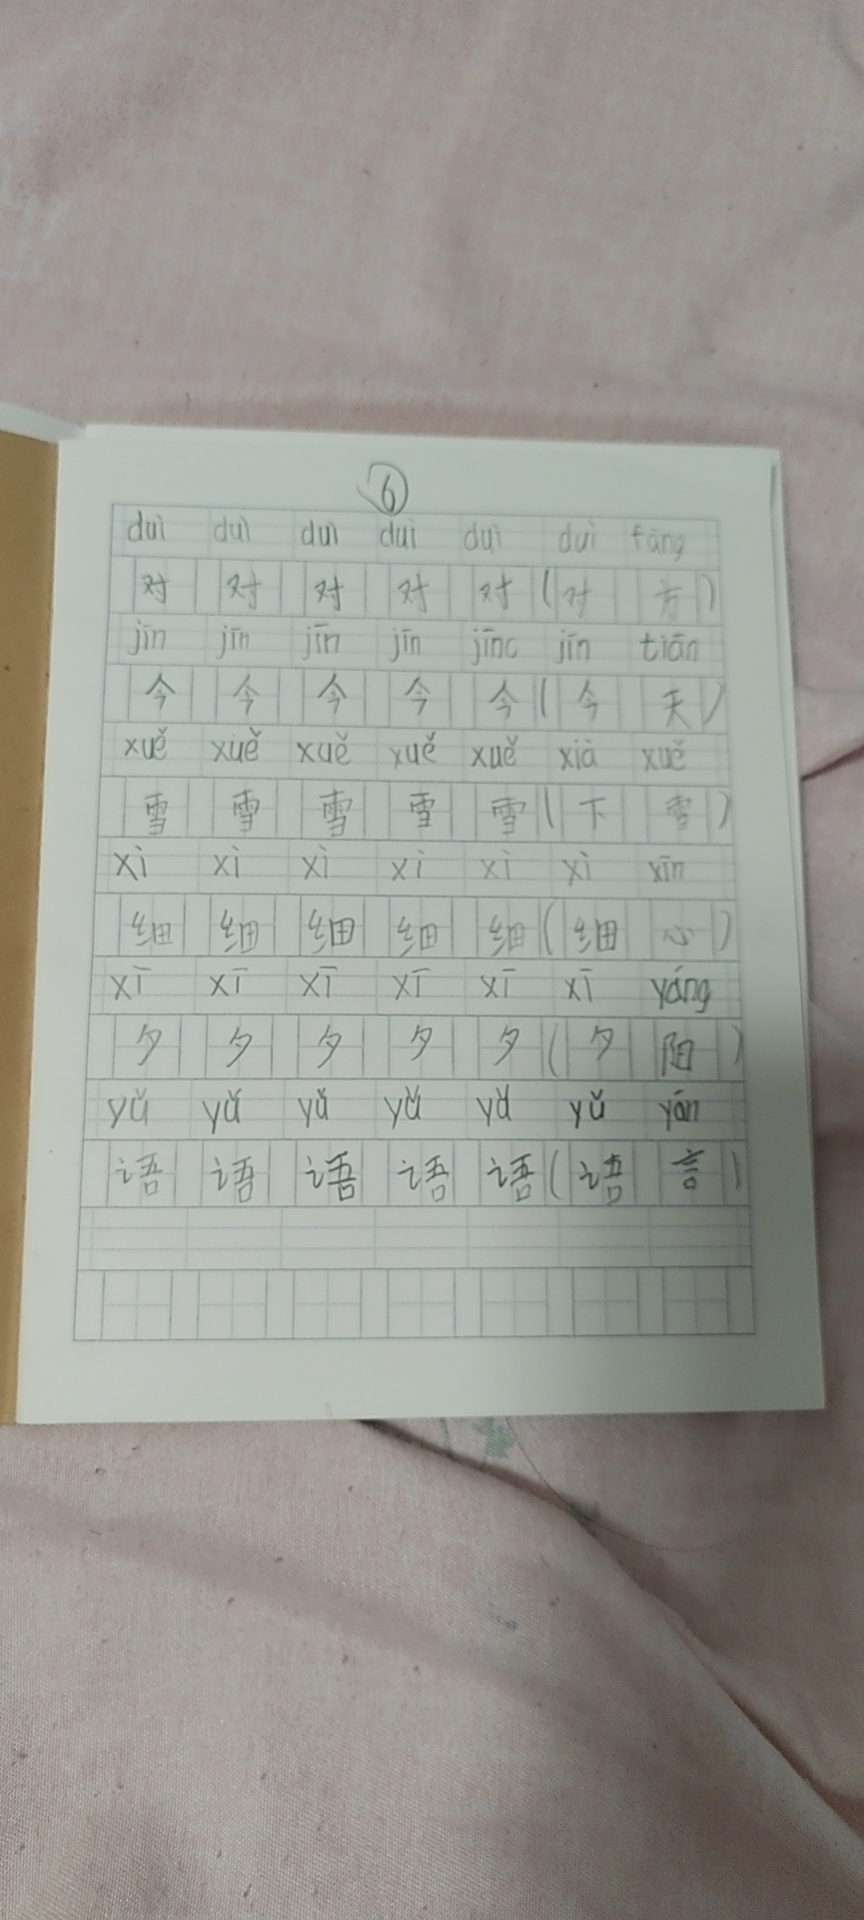 6
duì duì duì duì duì duì fāng
对 对 对 对 对 ( 对 方 )
jīn jīn jīn jīn jīnc jīn tiān
今 今 今 今 今 ( 今 天 )
xuě xuě xuě xuě xuě xià xuě
雪 雪 雪 雪 雪 ( 下 雪 )
xì xì xì xì xì xì xīn
细 细 细 细 细 ( 细 心 )
xī xī xī xī xī xī yáng
夕 夕 夕 夕 夕 ( 夕 阳 )
yǔ yǔ yǔ yǔ yǔ yǔ yán
语 语 语 语 语 ( 语 言 )